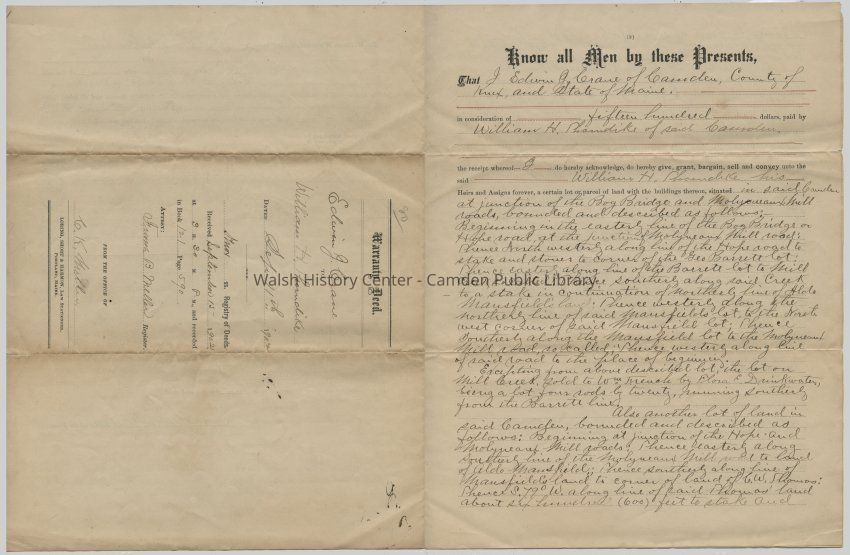 (3)
Know all Men by these Presents,
That I Edwin J. Crane of Camden, County of
Knox, and State of Maine.
in consideration of fifteen hundred dollars, paid by
William H. Thorndike of said Camden.
the receipt whereof I do hereby acknowledge, do hereby give, grant, bargain, sell and convey unto the
said William H. Thorndike his
Heirs and Assigns forever, a certain lot or parcel of land with the buildings thereon, situated in said Camden
at junction of the Bog Bridge and Molyneaux Mill
roads, bounded and described as follows;
Beginning in the easterly line of the Bog Bridge or
Hope road, at the junction of Molyneaux Mill road;
thence North westerly along line of the Hope road to
stake and stones to corner of the Barrett lot;
Thence easterly along line of the Barrett lot to Mill
thence southerly along said Creek
to a stake in continuation of North line of
Mansfield lay; thence westerly along the
northerly line of said Mansfields lot to the North
west corner of said Mansfield lot; Thence
Southerly along the Mansfield lot to the Molyneaux
Mill road, so called; Thence westerly along line
of said road to the place of beginning.
Excepting from above described lot, the lot on
Mill Creek, sold to Wm French by Flora E. Drinkwater,
being a lot four rods by twenty, running southerly
from the Barrett line.
Also another lot of land in
said Camden, bounded and described as
follows: Beginning at junction of the Hope and
Molyneaux Mill roads; Thence easterly along
Southerly line of the Molyneaux Mill road to land
of Mansfield; Thence southerly along line of
Mansfields land to corner of land of C.W. Thomas;
Thence S. 79° W. along line of said Thomas' land
about six hundred (600) feet to stake and
Warranty Deed.
Edwin J. Crane
TO
William H. Thorndike
DATED Sept. 1902
Knox ss. Registry of Deeds.
Received September 15 1902
at 3 H. 30 M. P. M., and recorded
in Book 131 Page 590
ATTEST:
Register.
FROM THE OFFICE OF
C. K. Miller
LORING, SHORT & HARMON, LAW STATIONERS,
PORTLAND, MAINE.
Walsh History Center - Camden Public Library